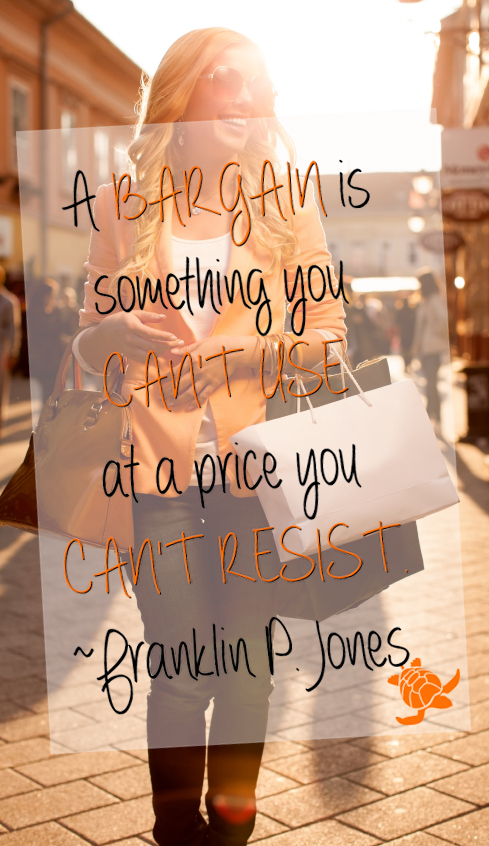 A BARGAIN is
something you
CAN'T USE
at a price you
CAN'T RESIST.
~Franklin P. Jones